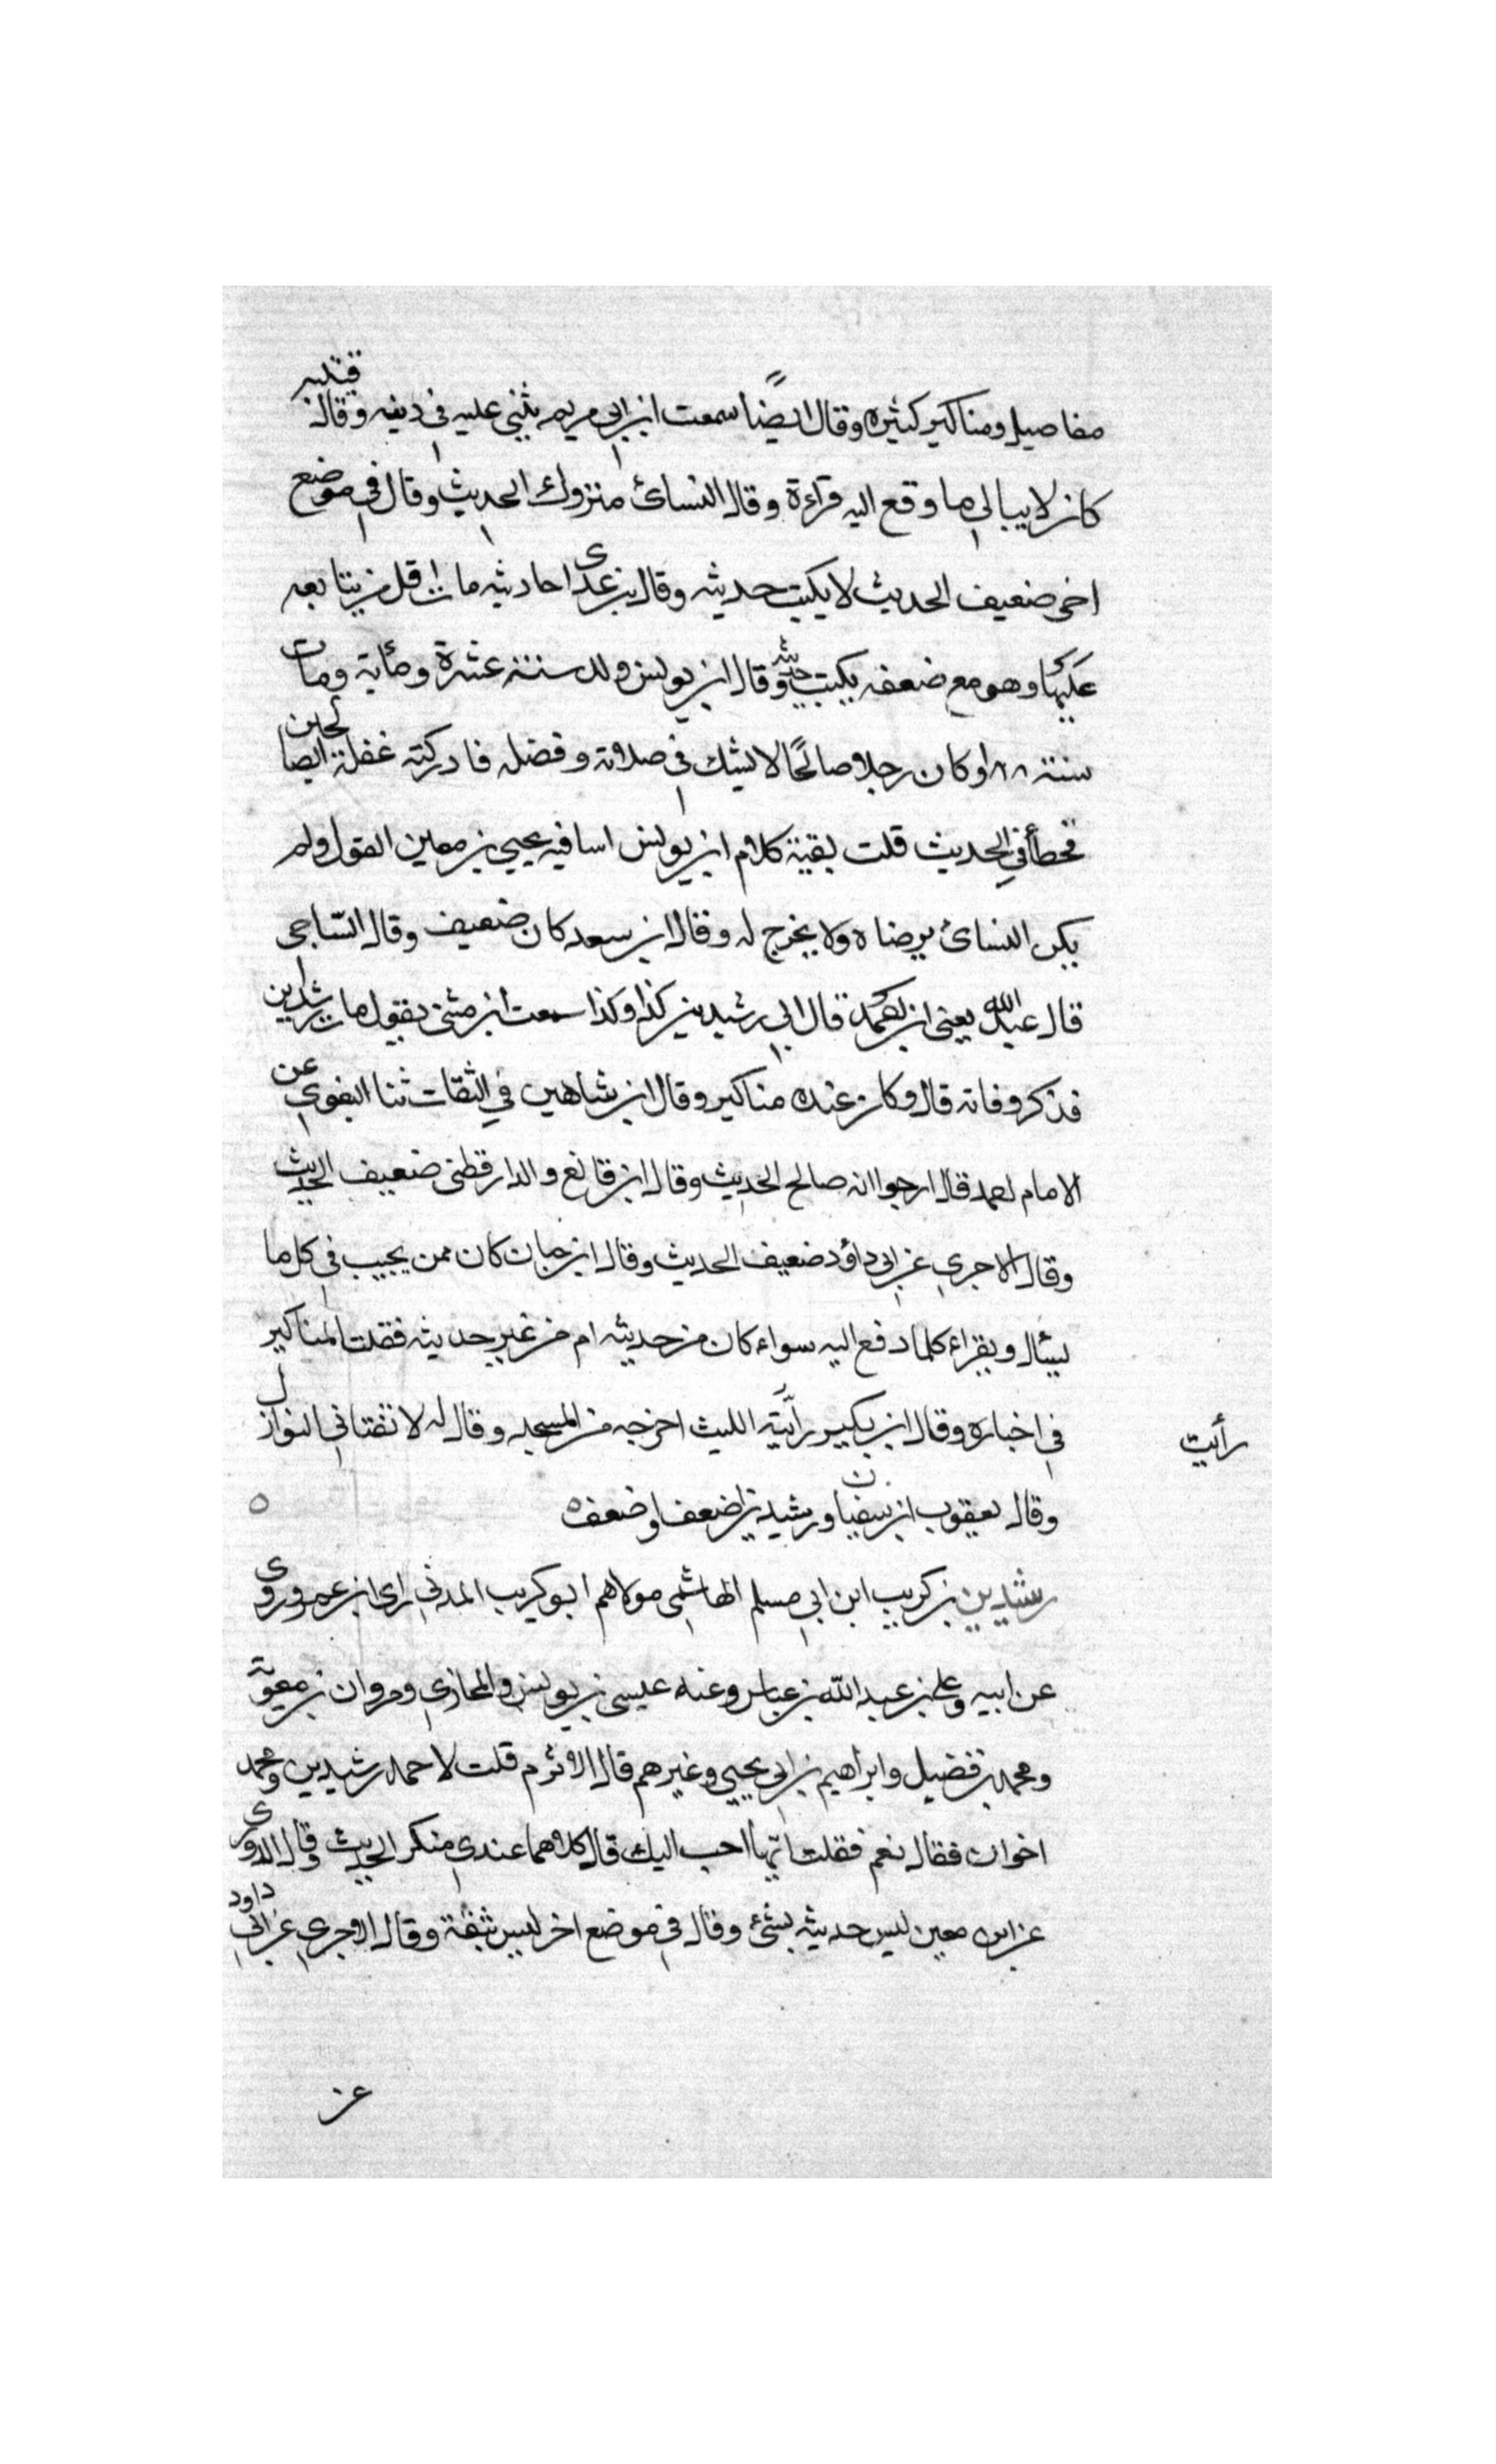 مفاصيل ومناكير كثيره وقال ايضًا سمعت ابن ابي مريم يثني عليه في دينه وقال قتيبه
كان لا يبالي ما وقع اليه قراءة وقال النسائ متروك الحديث وقال في موضع
اخر ضعيف الحديث لا يكتب حديثه وقال بن عدى احاديثه ما اقل من يتابعه
عليها وهو مع ضعفه يكتب حديثه وقال ابن يونس ولد سنة عشرة ومأية ومات
سنة ١٨٨ وكان رجلا صالحًا لا يشك في صلاته وفضله فادركته غفلة الصالحين
فخطأ في الحديث قلت بقية كلام ابن يونس اسا فيه يحيي بن معين القول ولم
يكن النسائ يرضاه ولا يخرج له وقال ابن سعد كان ضعيف وقال الساجى
قال عبد الله يعنى ابن احمد قال ابي رشدين كذا وكذا سمعت ابن مثنى يقول مات رشدين
فذكر وفاته قال وكان عنده مناكير وقال ابن شاهين في الثقات ثنا البغوي عن
الامام احمد قال ارجوا انه صالح الحديث وقال ابن قانع والدارقطنى ضعيف الحديث
وقال الاجري عن ابى داؤد ضعيف الحديث وقال ابن حبان كان ممن يجيب في كل ما
يسئال ويقراء كلما دفع اليه سواء كان من حديثه ام من غير حديثه فغلبت المناكير
في اخباره وقال ابن بكير رأيته الليث اخرجه من المسجد وقال له لا تفتا في النوازل
رأيت
وقال يعقوب ابن سفيان ورشدين اضعف واضعف ه
رشدين بن كريب ابن ابي مسلم الهاشمى مولاهم ابو كريب المدني راى ابن عمر وروى
عن ابيه وعلى بن عبد الله بن عباس وعنه عيسى بن يونس والمحاربي ومروان بن معوية
ومحمد بن فضيل وابراهيم بن ابى يحيي وغيرهم قال الاثرم قلت لاحمد رشدين ومحمد
اخوان فقال نعم فقلت ايهما احب اليك قال كلاهما عندي منكر الحديث وقال الدورى
عن ابن معين ليس حديثه بشئ وقال في موضع اخر ليس بثقة وقال الاجري عن ابي داود
عن